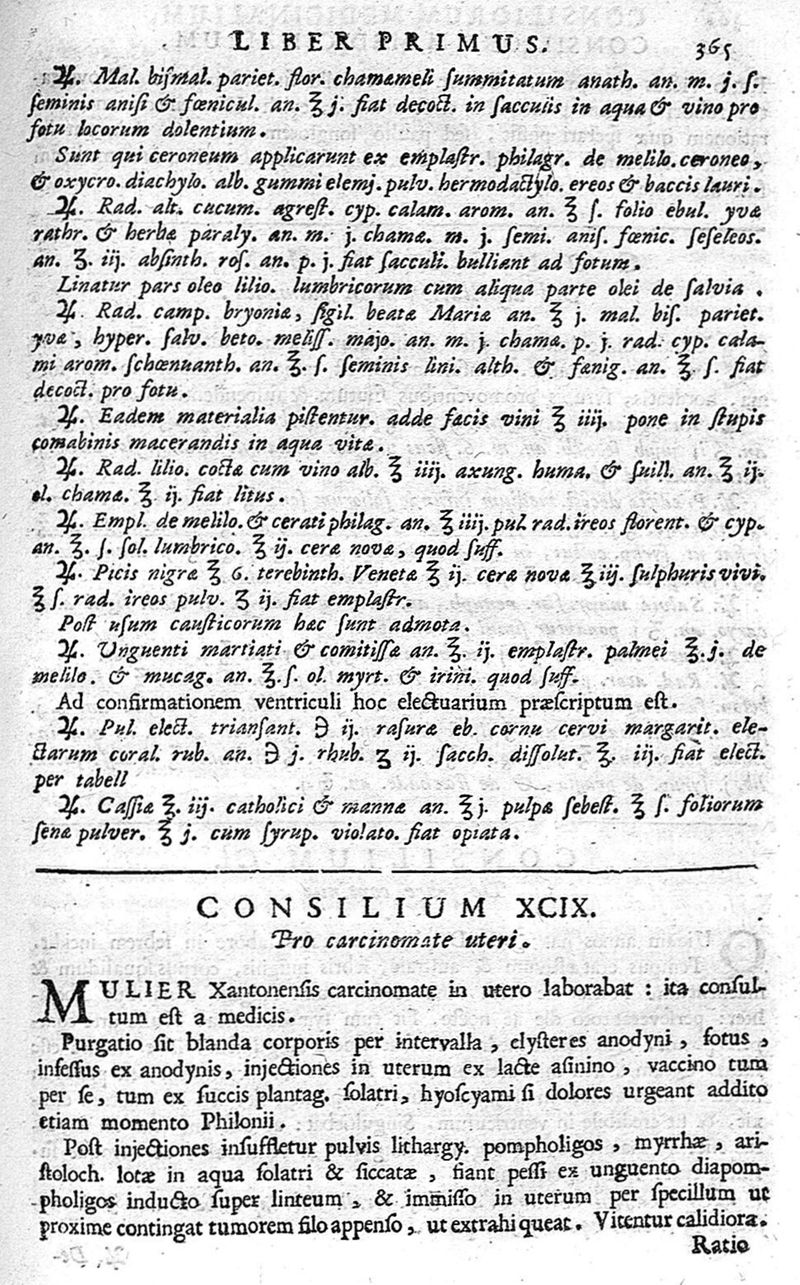 LIBER PRIMUS. 365
♃. Mal. biſmal. pariet. flor. chamæmeli ſummitatum anath. an. m. j. ſ.
ſeminis aniſi & fœnicul. an. ℥ j. fiat decoct. in ſacculis in aqua & vino pro
fotu locorum dolentium.
Sunt qui ceroneum applicarunt ex emplaſtr. philagr. de melilo. ceroneo,
& oxycro. diachylo. alb. gummi elemj. pulv. hermodactylo. ereos & baccis lauri.
♃. Rad. alt. cucum. agreſt. cyp. calam. arom. an. ℥ ſ. folio ebul. yvæ
rathr. & herbæ paraly. an. m. j. chamæ. m. j. ſemi. aniſ. fœnic. ſeſeleos.
an. ʒ. iij. abſinth. roſ. an. p. j. fiat ſacculi. bulliant ad fotum.
Linatur pars oleo lilio. lumbricorum cum aliqua parte olei de ſalvia.
♃. Rad. camp. bryoniæ, ſigil. beatæ Mariæ an. ℥ j. mal. biſ. pariet.
yvæ, hyper. ſalv. beto. meliſſ. majo. an. m. j. chamæ. p. j. rad. cyp. cala-
mi arom. ſchœnuanth. an. ℥. ſ. ſeminis lini. alth. & fænig. an. ℥ ſ. fiat
decoct. pro fotu.
♃. Eadem materialia piſtentur. adde facis vini ℥ iiij. pone in ſtupis
comabinis macerandis in aqua vitæ.
♃. Rad. lilio. coctæ cum vino alb. ℥ iiij. axung. huma. & ſuill. an. ℥ ij.
ol. chamæ. ℥ ij. fiat litus.
♃. Empl. de melilo. & cerati philag. an. ℥ iiij. pul. rad. ireos florent. & cyp.
an. ℥. ſ. ſol. lumbrico. ℥ ij. ceræ novæ, quod ſuff.
♃. Picis nigræ ℥ 6. terebinth. Venetæ ℥ ij. ceræ novæ ℥ iij. ſulphuris vivi.
℥ ſ. rad. ireos pulv. ʒ ij. fiat emplaſtr.
Poſt uſum cauſticorum hæc ſunt admota.
♃. Unguenti martiati & comitiſſæ an. ℥. ij. emplaſtr. palmei ℥. j. de
melilo. & mucag. an. ℥. ſ. ol. myrt. & irini. quod ſuff.
Ad confirmationem ventriculi hoc electuarium præſcriptum eſt.
♃. Pul. elect. trianſant. ℈ ij. raſuræ eb. cornu cervi margarit. ele-
ctarum coral. rub. an. ℈ j. rhub. ʒ ij. ſacch. diſſolut. ℥. iij. fiat elect.
per tabell
♃. Caſſiæ ℥. iij. catholici & mannæ an. ℥ j. pulpæ ſebeſt. ℥ ſ. foliorum
ſenæ pulver. ℥ j. cum ſyrup. violato. fiat opiata.
CONSILIUM XCIX.
Pro carcinomate uteri.
MULIER Xantonenſis carcinomate in utero laborabat : ita conſul-
tum eſt a medicis.
Purgatio ſit blanda corporis per intervalla, clyſteres anodyni, fotus,
inſeſſus ex anodynis, injectiones in uterum ex lacte aſinino, vaccino tum
per ſe, tum ex ſuccis plantag. ſolatri, hyoſcyami ſi dolores urgeant addito
etiam momento Philonii.
Poſt injectiones inſuffletur pulvis lithargy. pompholigos, myrrhæ, ari-
ſtoloch. lotæ in aqua ſolatri & ſiccatæ, fiant peſſi ex unguento diapom-
pholigos inducto ſuper linteum, & immiſſo in uterum per ſpecillum ut
proxime contingat tumorem filo appenſo, ut extrahi queat. Vitentur calidiora.
Ratio